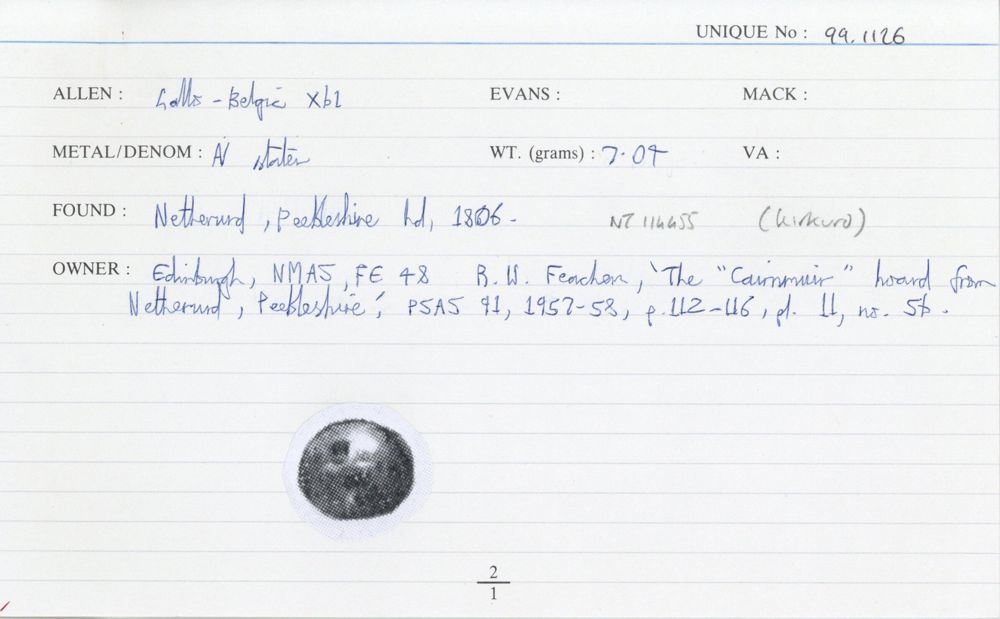 UNIQUE No : 99.1126
ALLEN : Gallo-Belgic Xb1 EVANS : MACK :
METAL/DENOM : AV stater WT. (grams) : 7.04 VA :
FOUND : Netherurd, Peebleshire hd, 1806. NT 114455 (Kirkurd)
OWNER : Edinburgh, NMAS, FE 48 R. W. Feachem, 'The "Cairnmuir" hoard from
Netherurd, Peebleshire', PSAS 91, 1957-58, p. 112-116, pl. 11, no. 5b.
2
1